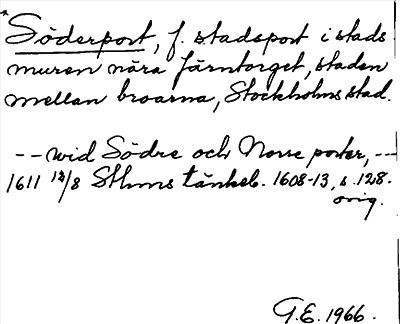 *
Söderport, f. stadsport i stads
muren nära Järntorget, staden
mellan broarna, Stockholms stad.
-- wid Södre och Norre porter, --
1611 12/8 Sthms tänkeb. 1608-13, s. 128.
orig.
G.E. 1966.